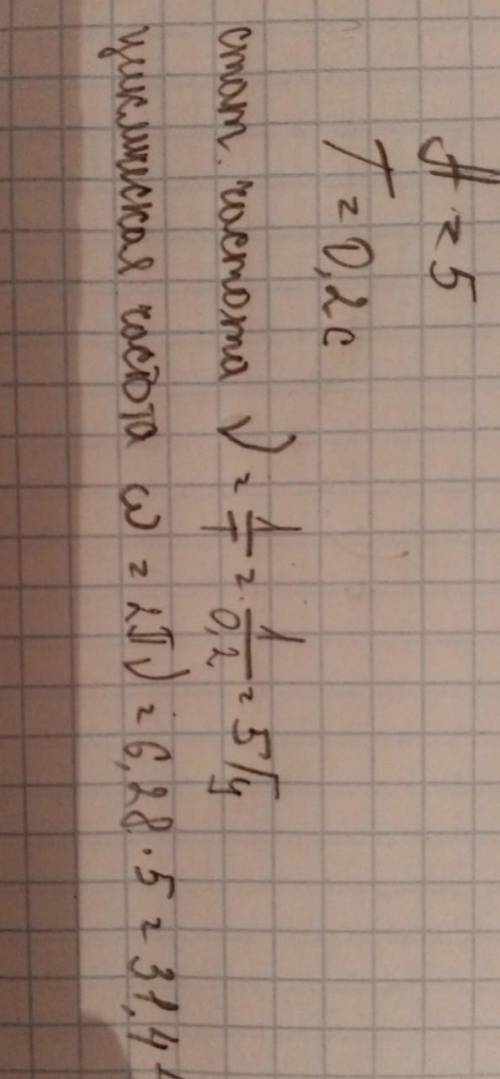 A = 5
T = 0,2 с
стат. частота ν = 1/T = 1/0,2 = 5 Гц
циклическая частота ω = 2πν = 6,28 · 5 = 31,4